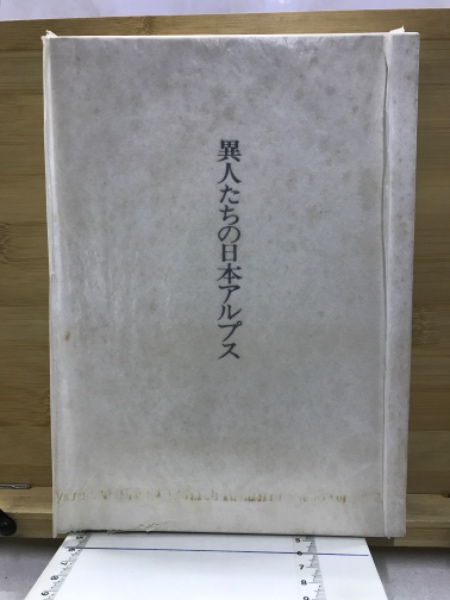 異人たちの日本アルプス